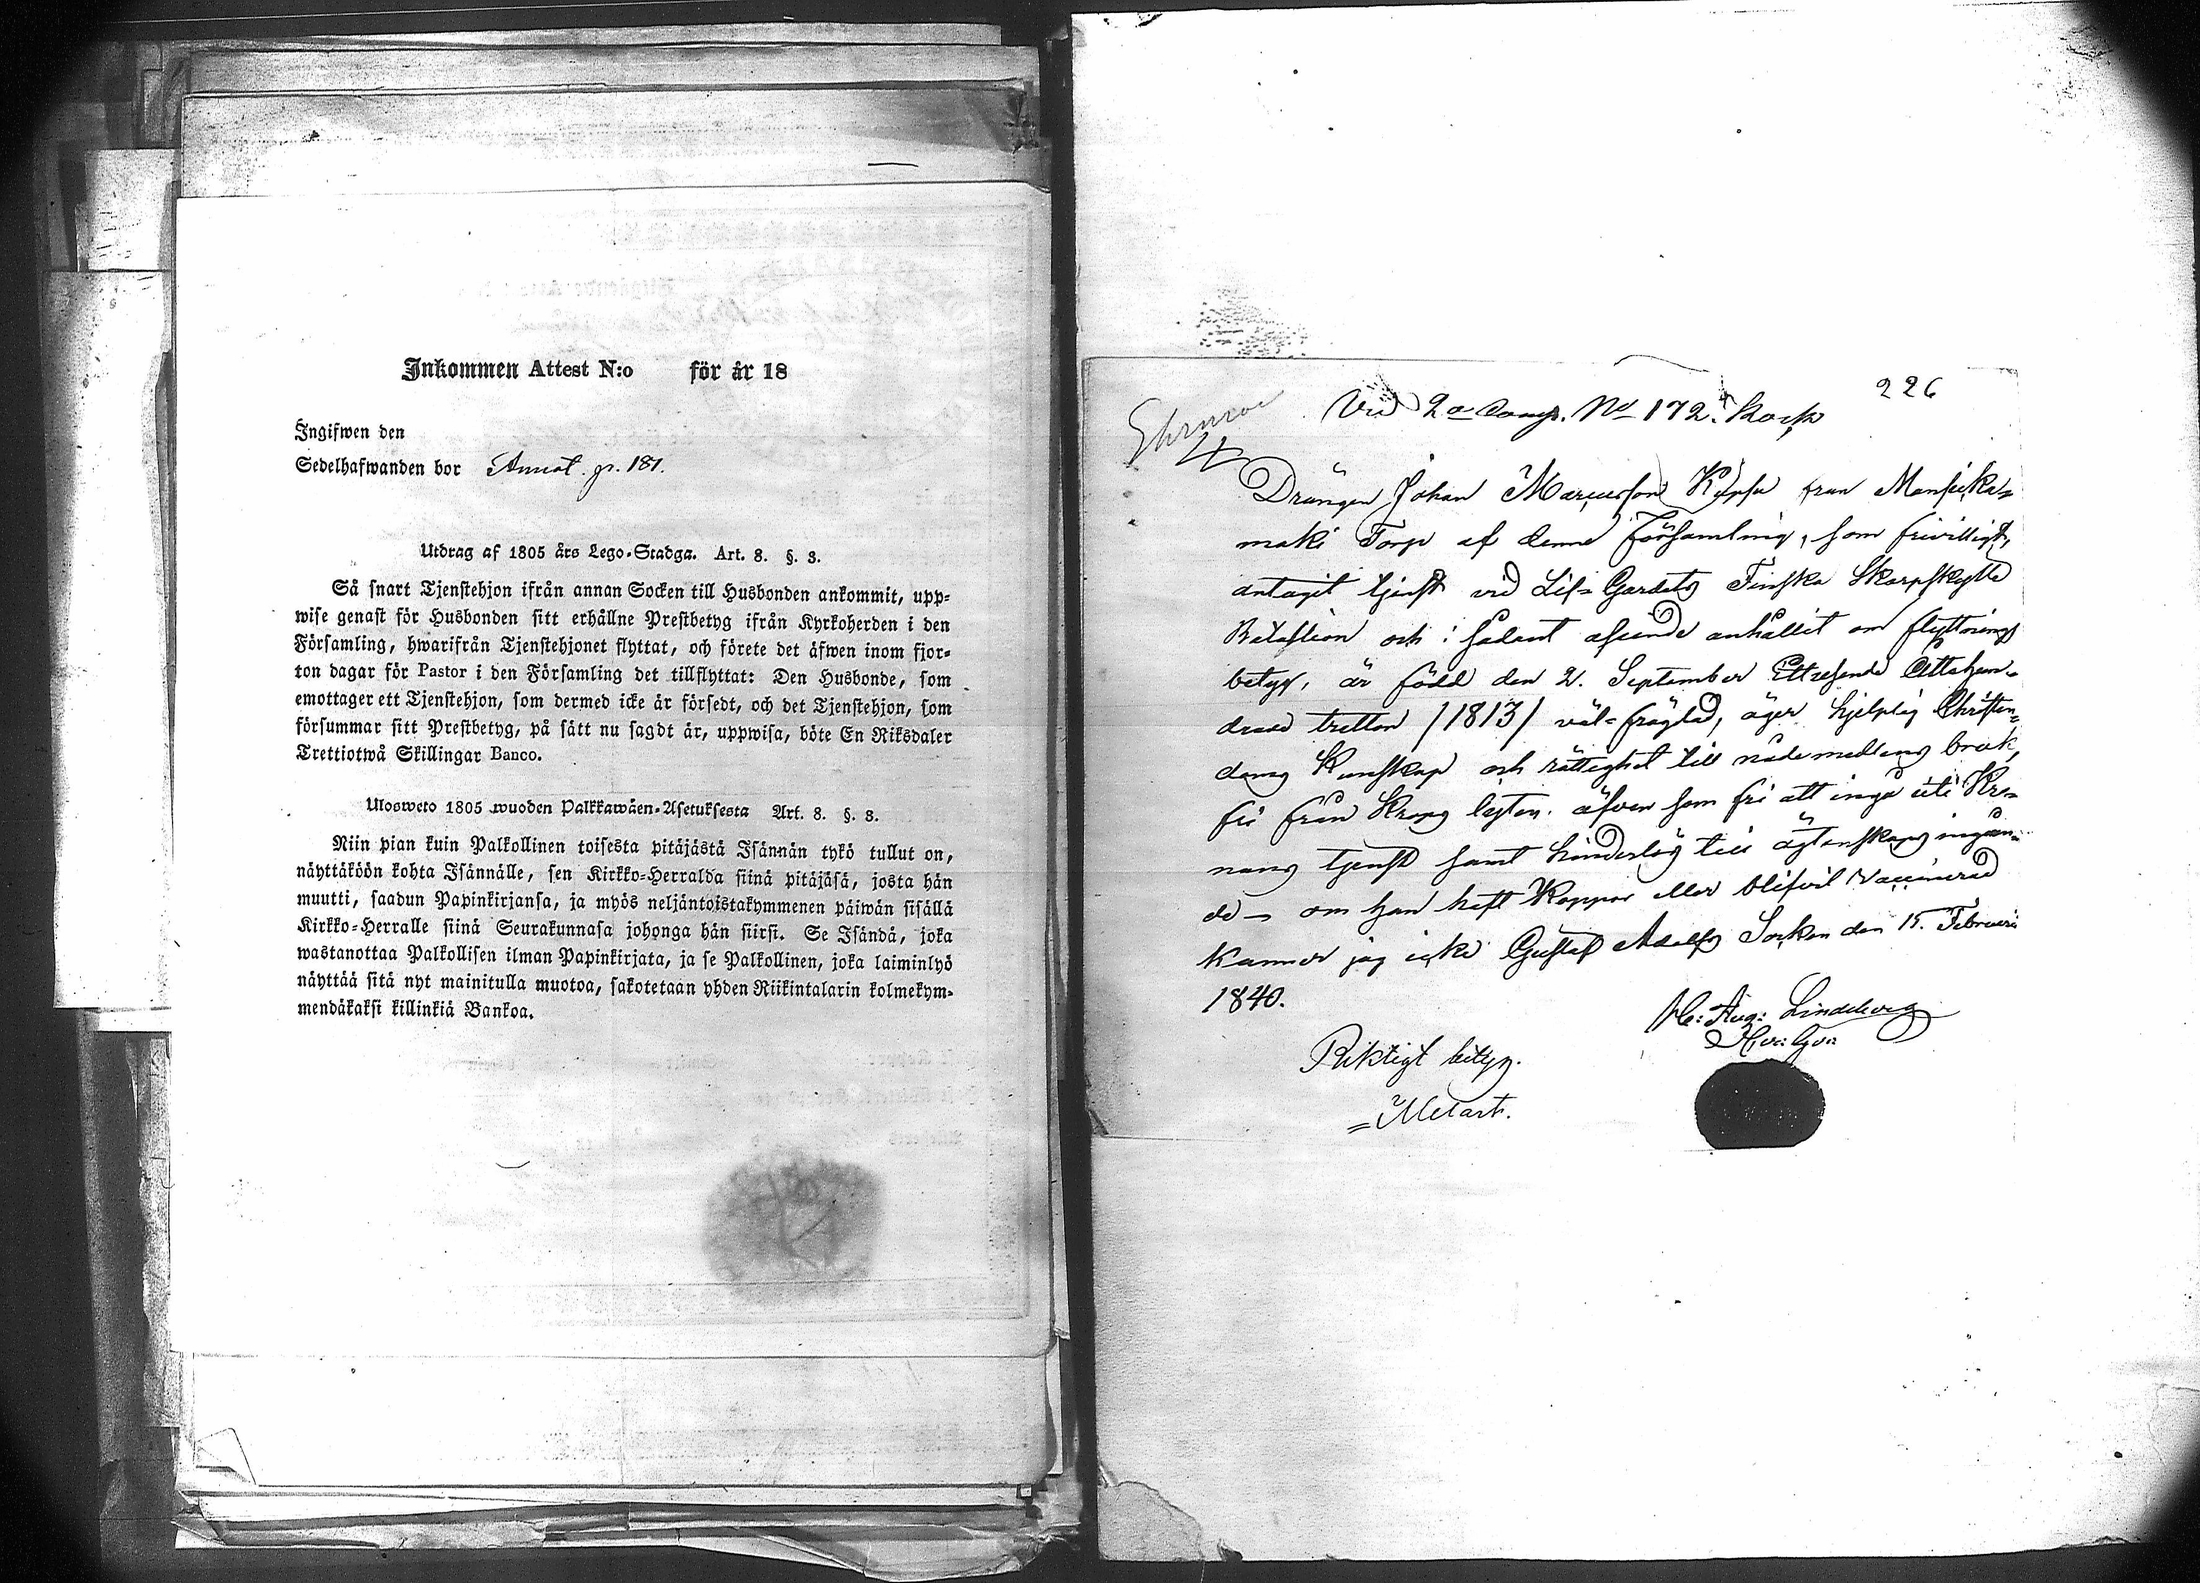 Inkommen Attest N:o för år 18
Ingifwen den
Sedelhafwanden bor Annot. p. 181.
Utdrag af 1805 års Lego-Stadga. Art. 8. §. 3.
Så snart Tjenstehjon ifrån annan Socken till Husbonden ankommit, upp-
wise genast för Husbonden sitt erhållne Prestbetyg ifrån Kyrkoherden i den
Församling, hwarifrån Tjenstehjonet flyttat, och förete det äfwen inom fjor-
ton dagar för Pastor i den Församling det tillflyttat: Den Husbonde, som
emottager ett Tjenstehjon, som dermed icke är försedt, och det Tjenstehjon, som
försummar sitt Prestbetyg, på sätt nu sagdt är, uppwisa, böte En Riksdaler
Trettiotwå Skillingar Banco.
Ulosweto 1805 wuoden Palkkawäen-Asetuksesta Art. 8. §. 8.
Niin pian kuin Palkollinen toisesta pitäjästä Isännän tykö tullut on,
näyttäköön kohta Isännälle, sen Kirkko-Herralda siinä pitäjäsä, josta hän
muutti, saadun Papinkirjansa, ja myös neljäntoistakymmenen päiwän sisällä
Kirkko-Herralle siinä Seurakunnasa johonga hän siirsi. Se Isändä, joka
wastanottaa Palkollisen ilman Papinkirjata, ja se Palkollinen, joka laiminlyö
näyttää sitä nyt mainitulla muotoa, sakotetaan yhden Riikintalarin kolmekym-
mendäkaksi killinkiä Bankoa.
226
Vid 2a Comp. No 172. Rask
Drängen Johan Marcusson from Mansicka-
mäki Torp af denne Församling, som frivilligt
antagit tjenst vid Lif-Gardets Finska Skarpskytte
Bataillon och i sådant afseende anhållit om flyttnings
betyg, är född den 2. September Ettusende Åttahun-
drade tretton /1813/ väl-frägdad, äger hjelplig Christen-
doms Kunskap och rättighet till nådemedlens bruk,
fri från Krono legten. äfven som fri att ingå uti Kro-
nans tjenst samt hinderlös till ägtenskaps ingåen-
de – om han haft Koppor eller blifvit Vaccinerad
känner jag icke Gustaf Adolfs Socken den 15. Februari
1840.
Aug: Lindeberg
Riktigt betyg.
=Melart.